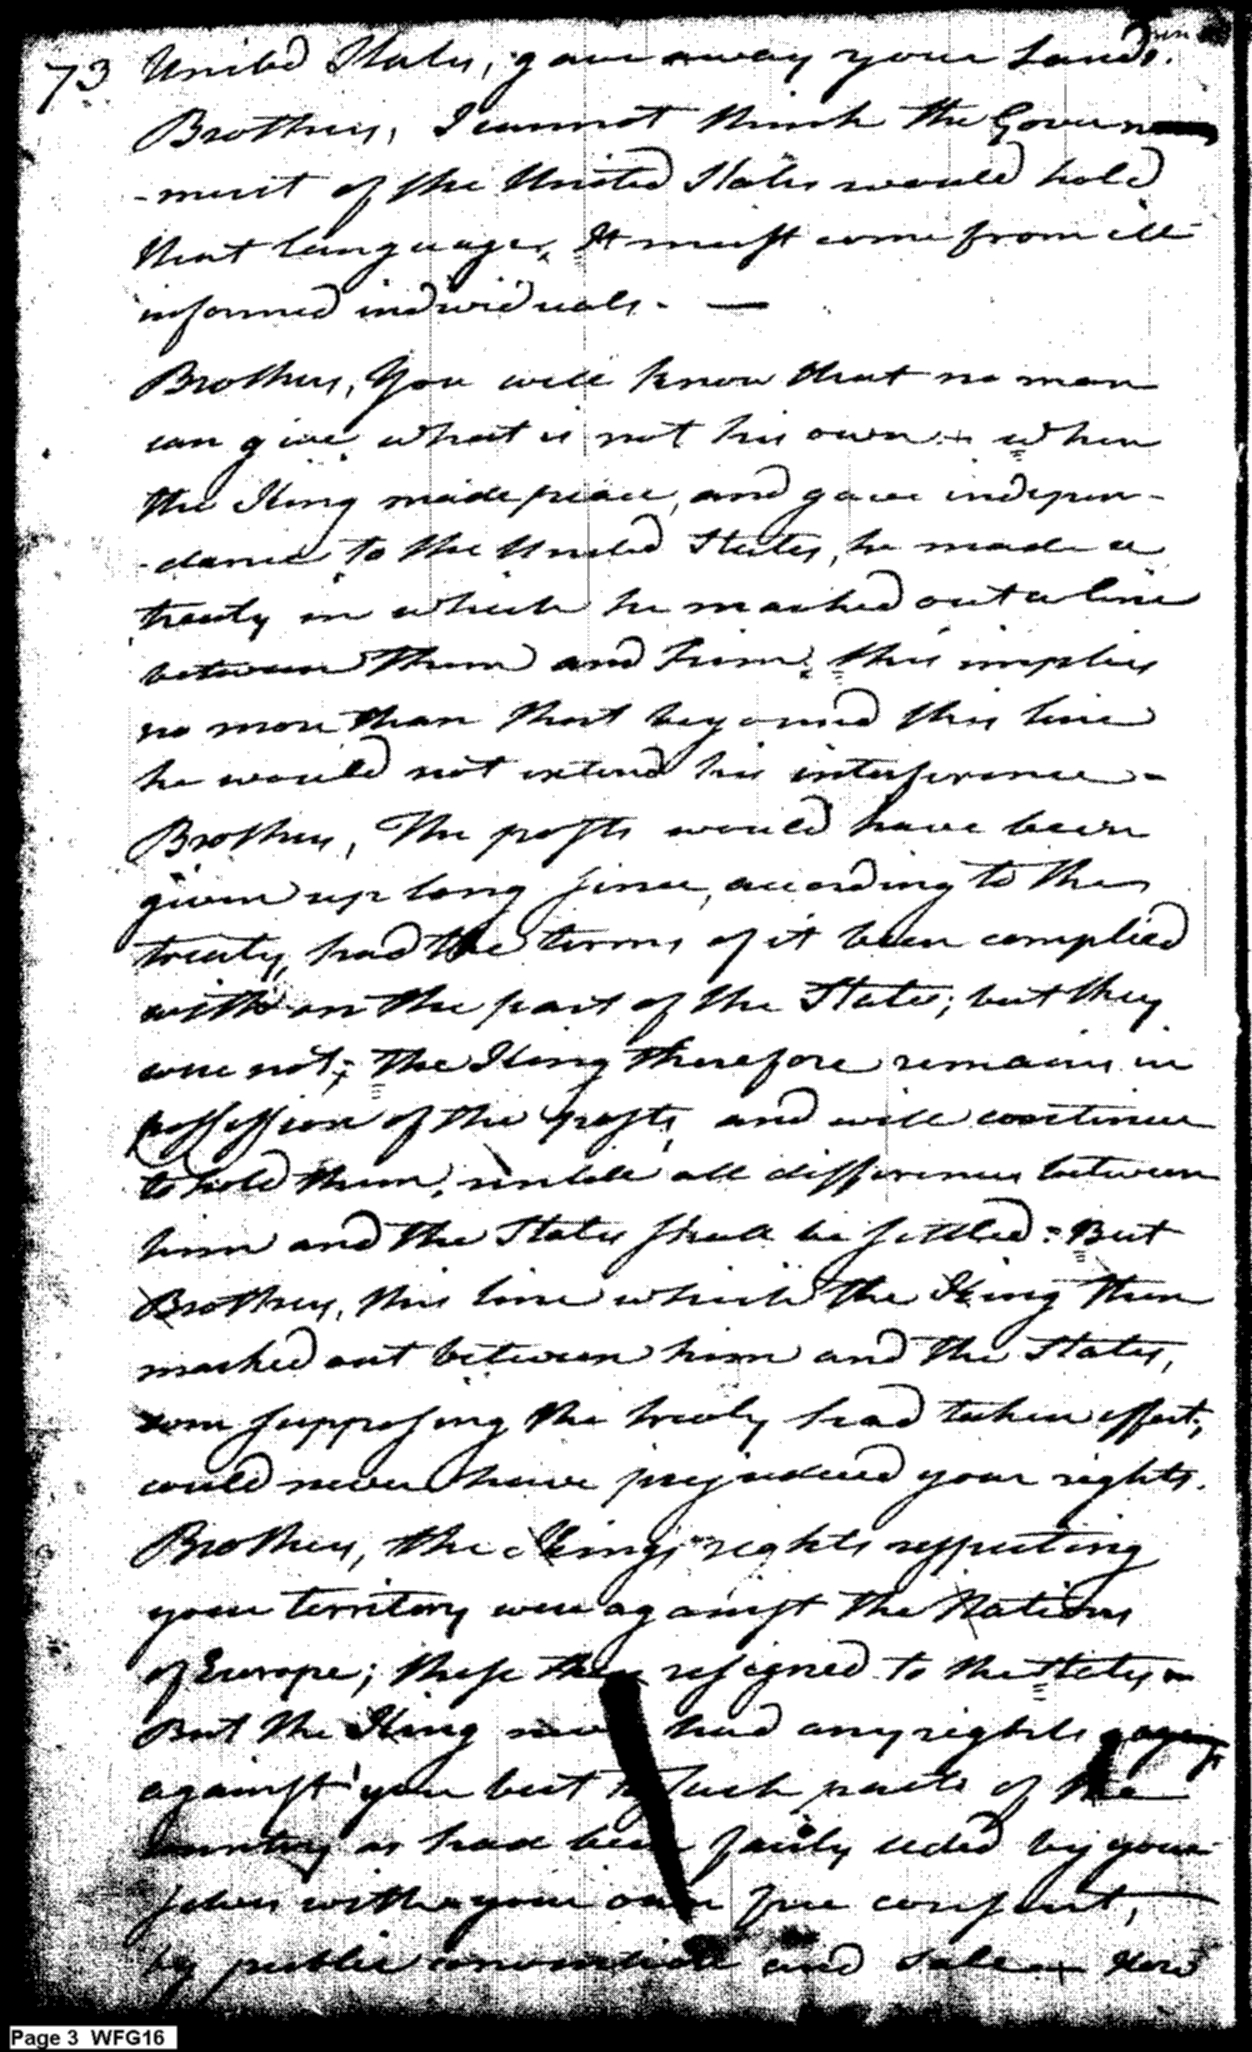 73 United States, gave away your Lands.
Brothers, I cannot think the Govern
-ment of the United States would hold
that language, It must come from ill
informed individuals. —
Brothers, You well know that no man
can give what is not his own. When
the King made peace, and gave indepen-
-dance to the United States, he made a
treaty in which he marked out a line
between them and him; this implies
no more than that beyound this line
he would not extend his interference -
Brothers, The posts would have been
given up long since, according to the
treaty, had the terms of it been complied
with on the part of the States; but they
were not; The King therefore remains in
possession of the posts, and will continue
to hold them, untill all differences between
him and the States shall be settled: But
Brothers, this line which the King then
marked out between him and the States,
even supposing the treaty had taken effect,
could never have prejudiced your rights.
Brothers, the Kings rights respecting
your territory were against the Nations
of Europe; these he resigned to the States
But the King never had any rights
against you but to such parts of the
country as had been fairly ceded by your
selves with your own free consent,
by public convention and sale. How
Page 3 WFG16